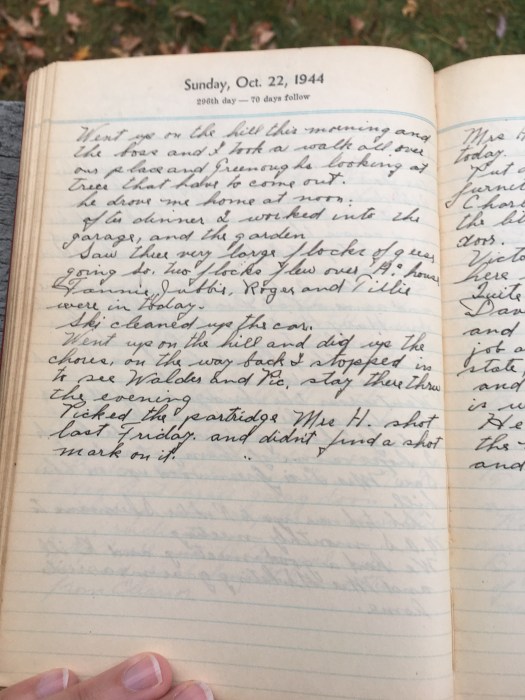 Sunday, Oct. 22, 1944
296th day — 70 days follow
Went up on the hill this morning and
the boss and I took a walk all over
our place and Greenoughs looking at
trees that have to come out.
he drove me home at noon.
after dinner I worked into the
garage, and the garden
Saw three very large flocks of geese
going So. two flocks flew over house
Fannie, Roger and Tillie
were in today.
Ski cleaned up the car.
Went up on the hill and did up the
chores, on the way back I stopped in
to see Waldes and Vic, stay there thru
the evening
Picked the partridge Mrs H. shot
last Friday. and didn't find a shot
mark on it.
Mrs
today.
Put
furni
Char
the
door.
Victo
here
Quite
Dav
and
job a
state,
and
is
He
the
and